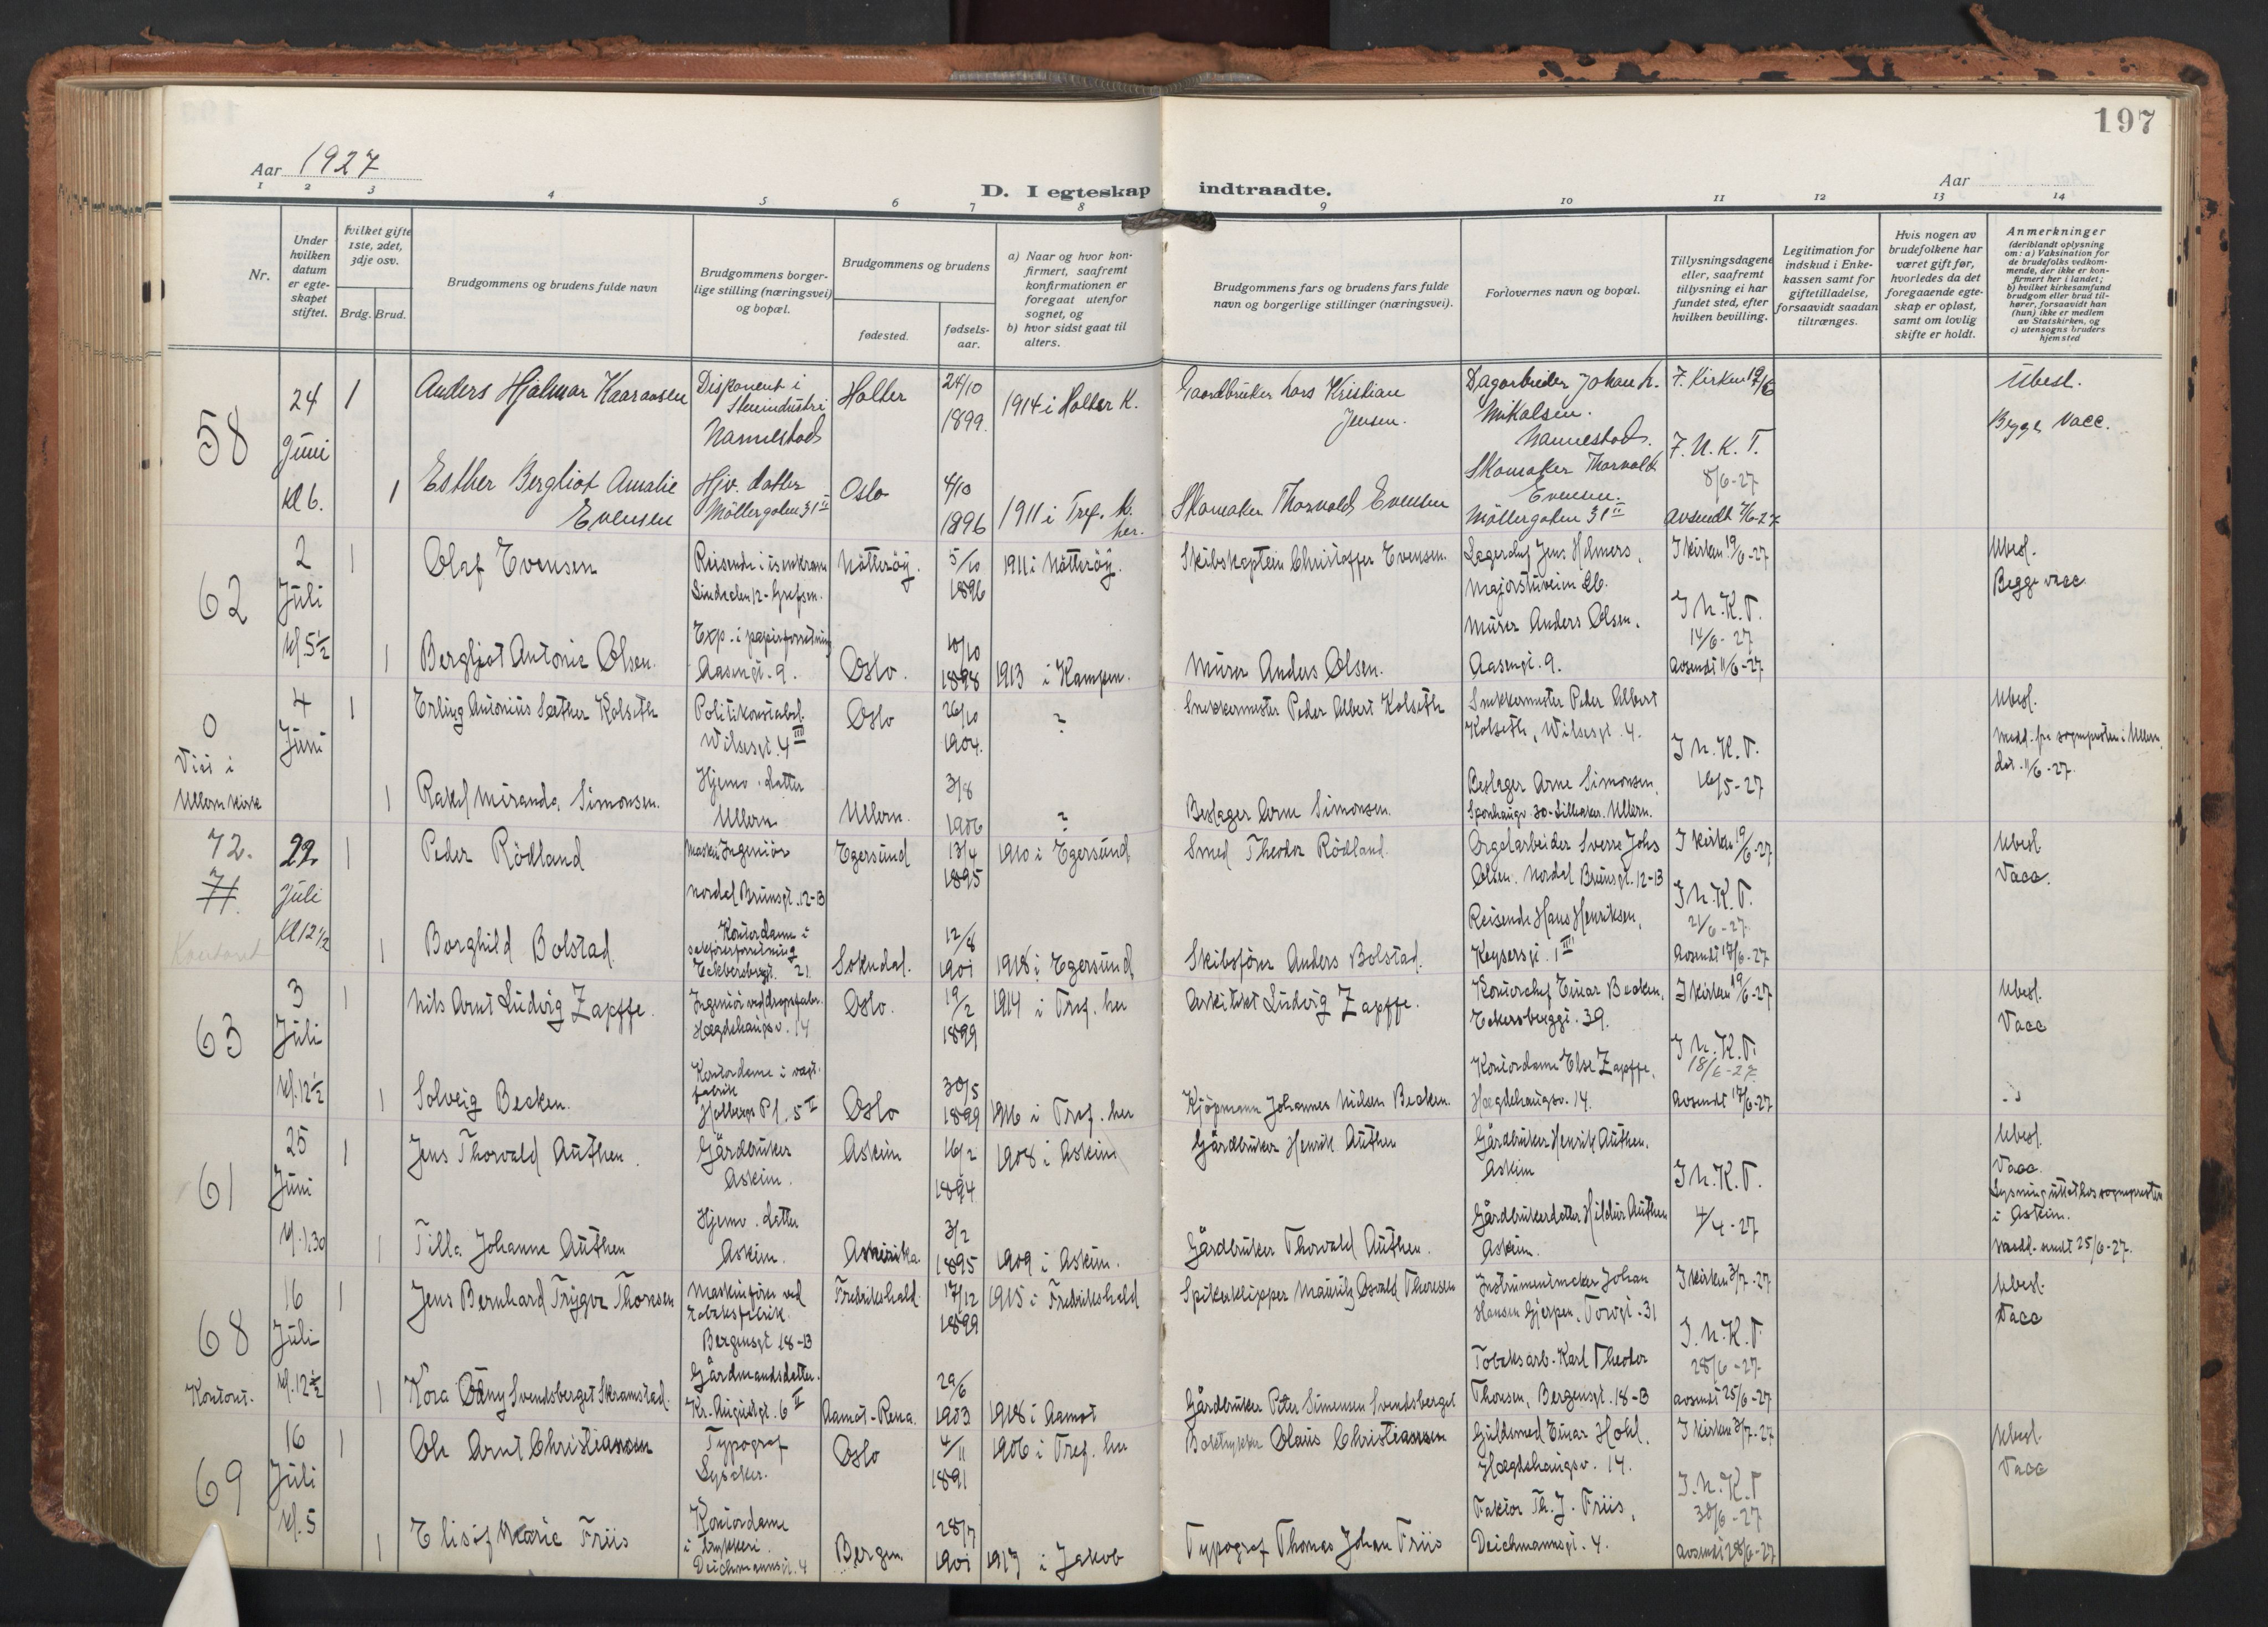 197
Aar 1927
D. I egteskap indtraadte.
Aar
1 2 3 4 5 6 7 8 9 10 11 12 13 14
Nr.
Under hvilken datum er egteskapet stiftet.
hvilket gifte 1ste, 2det, 3dje osv.
Brdg. Brud.
Brudgommens og brudens fulde navn
Brudgommens borger-
lige stilling (næringsvei)
og bopæl.
Brudgommens og brudens
fødested.
fødsels-
aar.
a) Naar og hvor kon-
firmert, saafremt
konfirmationen er
foregaat utenfor
sognet, og
b) hvor sidst gaat til
alters.
Brudgommens fars og brudens fars fulde
navn og borgerlige stillinger (næringsvei).
Forlovernes navn og bopæl.
Tillysningsdagene
eller, saafremt
tillysning ei har
fundet sted, efter
hvilken bevilling.
Legitimation for
indskud i Enke-
kassen samt for
giftetilladelse,
forsaavidt saadan
tiltrænges.
Hvis nogen av
brudefolkene har
været gift før,
hvorledes da det
foregaaende egte-
skap er opløst,
samt om lovlig
skifte er holdt.
Anmerkninger
(deriblandt oplysning
om: a) Vaksination for
de brudefolks vedkom-
mende, der ikke er kon-
firmert her i landet;
b) hvilket kirkesamfund
brudgom eller brud til-
hører, forsaavidt han
(hun) ikke er medlem
av Statskirken, og
c) utensogns bruders
hjemsted
58
24 Juni Kl 6.
1 Anders Hjalmar Kaaraasen
Disponent i
Stenindustri
Nannestad
Holter
24/10 1899.
1914 i Holter K.
Gaardbruker Lars Kristian
Jensen.
Dagarbeider Johan L.
Mikalsen.
Nannestad.
F. Kirken 19/6
F. U. K. T.
8/6-27
Ubesl.
Begge vacc.
1 Esther Bergliot Amalie
Evensen
Hjv. datter
Møllergaten 31 II
Oslo
4/10 1896
1911 i Tref. k.
her.
Skomaker Thorvald Evensen
Skomaker Thorvald
Evensen.
Møllergaten 31 II
Avsendt 7/6-27
62
2 Juli Kl. 5½
1 Olaf Evensen
Reisende i isenkram
Nötteröy.
5/10 1896
1911 i Nötteröy.
Skibskaptein Christoffer Evensen.
Lagerchef Jens Helmers,
Majorstuveien 26.
I kirken 19/6-27
I N.K.T.
14/6-27
Ubesl.
Begge vacc
1 Bergljot Antonie Olsen.
Exp. i papirforretning
Aasengt. 9.
Oslo.
10/10 1898
1913 i Kampen.
Murer Anders Olsen.
Murer Anders Olsen,
Aasengt. 9.
Avsendt 11/6-27
0
Viet i
Ullern kirke
4 Juni
1 Erling Antonius Sæther Kolseth
Politikonstabel.
Wilsesgt. 4 III
Oslo
26/10 1904.
?
Snekkermester Peder Albert Kolseth
Snekkermester Peder Albert
Kolseth, Wilsesgt. 4.
I N.K.T.
16/5-27
Ubesl.
Medd. fra sogneprosten i Ullern,
dat. 11/6-27.
1 Rakel Miranda Simonsen.
Hjemv. datter
Ullern
Ullern.
3/8 1906
?
Beslager Arne Simonsen.
Beslager Arne Simonsen,
Sponhaugv. 30-Lilleaker. Ullern.
72.
71.
22. Juli Kl 12½
1 Peder Rödland
Maskiningeniör
Nordal Brunsgt. 12-B
Egersund
13/4 1895
1910 i Egersund
Smed Theodor Rödland.
Orgelarbeider Sverre Johs
Olsen. Nordal Brunsgt. 12-B
I kirken 19/6-27
I N.K.T.
21/6-27.
Ubesl.
Vacc.
Kontoret
1 Borghild Bolstad.
Kontordame i
sakförerforretning
21
Sokndal.
12/8 1901
1918 i Egersund
Skibsförer Anders Bolstad.
Reisende Hans Henriksen,
Keysersgt. 1 III
Avsendt 17/6-27
63
3 Juli Kl. 12½
1 Nils Arnt Ludvig Zapffe.
Hægdehaugsv. 14
Oslo.
19/2 1899
1914 i Tref. her
Arkitekt Ludvig Zapffe.
Kontorchef Einar Becken,
Eckersbergsgt. 39.
I kirken 19/6-27
I N.K.T.
18/6-27.
Ubesl.
Vacc
1 Solveig Becken.
Kontordame i vegt.
fabrik
Holbergs Pl. 5 II
Oslo
30/5 1899
1916 i Tref. her
Kjöpmann Johannes Nielsen Becken.
Kontordame Else Zapffe,
Hægdehaugsv. 14.
Avsendt 17/6-27
61
25 Juni Kl. 1.30
1 Jens Thorvald Authen.
Gårdbruker
Askim.
Askim
16/2 1894
1908 i Askim
Gårdbruker Henrik Authen
Gårdbruker Henrik Authen.
Askim
I N.K.T.
4/4-27
Ubesl.
Vacc.
Lysning uttatt hos sogneprosten
i Askim.
Medd. sendt 25/6-27.
1 Tilla Johanne Authen
Hjemv. datter
Askim.
Amerika
3/2 1895
1909 i Askim.
Gårdbruker Thorvald Authen.
Gårdbrukerdatter Hildur Authen
Askim.
68
16 Juli Kl. 12½
1 Jens Bernhard Trygve Thoresen
Maskinförer ved
tobaksfabrik.
Bergensgt 18-B
Fredrikshald.
17/12 1899
1915 i Fredrikshald
Spikerklipper Mauritz Osvald Thoresen
Instrumentmaker Johan
Hansen Gjerpen, Torvgt. 31
I kirken 3/7-27
I. N.K.T.
28/6-27.
Ubesl.
Vacc
Kontoret.
1 Kora Odny Svendsberget Skramstad.
Gårdmandsdatter.
Kr. Augustgt. 6 II
Aamot-Rena.
29/6 1903
1918 i Aamot
Gårdbruker Peter Simensen Svendsberget
Tobaksarb. Karl Theodor
Thoresen, Bergensgt. 18-B
Avsendt 25/6-27
69
16 Juli Kl. 5
1 Ole Arnt Christiansen
Typograf
Lysaker.
Oslo
4/11 1891
1906 i Tref. her
Boktrykker Olaus Christiansen
Guldsmed Einar Hoel.
Hægdehaugsv. 14.
I kirken 3/7-27
I. N.K.T
30/6-27
Ubesl.
Vacc
1 Elisif Marie Friis
Kontordame
i trykkeri.
Deichmannsgt. 4
Bergen
28/7 1901
1917 i Jakob
Typograf Thomas Johan Friis
Faktor Th. J. Friis,
Deichmannsgt. 4.
Avsendt 28/6-27